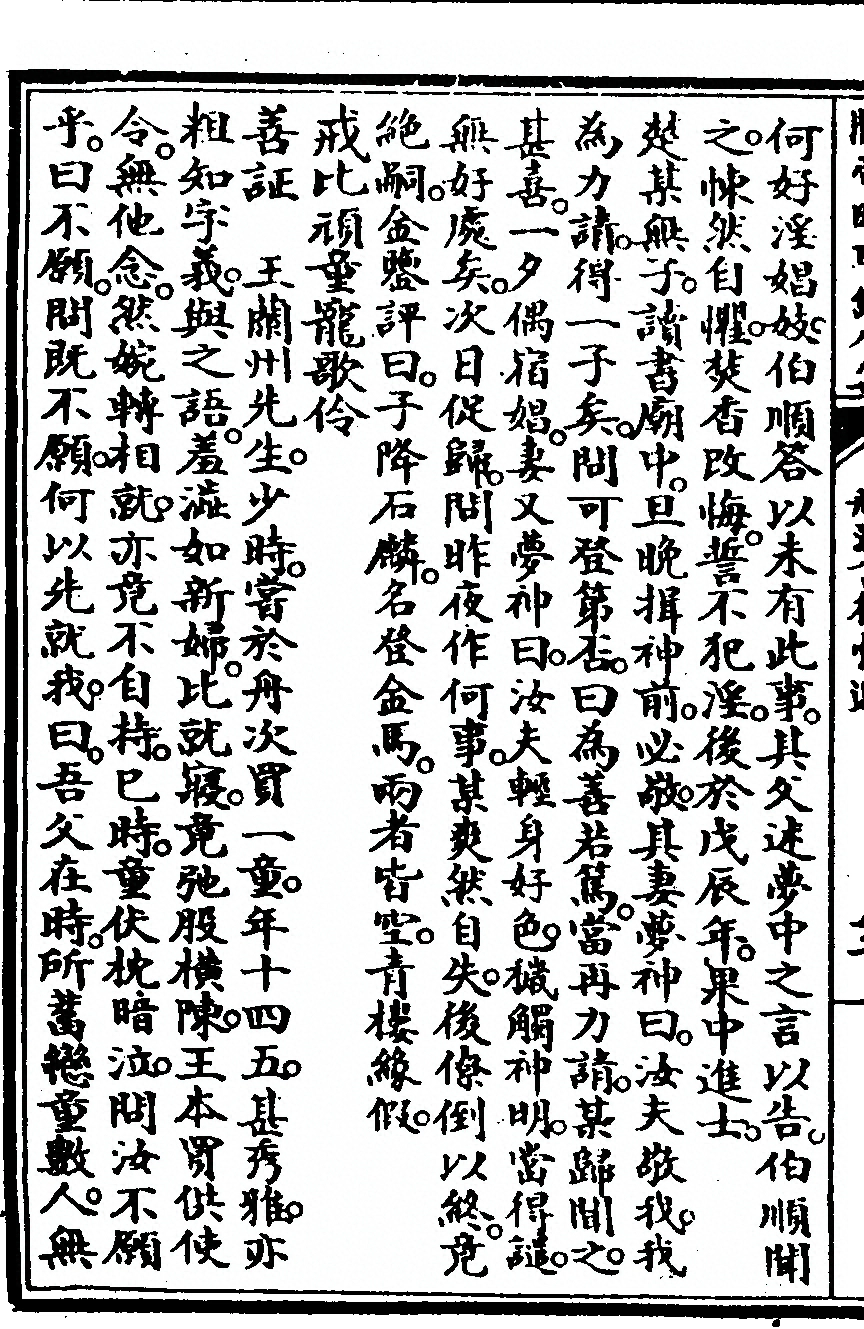 何好淫娼妓伯順答以未有此事。其父述夢中之言以告。伯順聞
之。悚然自懼。焚香改悔。誓不犯淫。後於戊辰年。果中進士。
楚某無子。讀書廟中。旦晚揖神前。必敬。其妻夢神曰。汝夫敬我。我
為力請。得一子矣。問可登第否。曰為善若篤。當再力請。某歸聞之。
甚喜。一夕偶宿娼。妻又夢神曰。汝夫輕身好色。穢觸神明。當得譴。
無好處矣。次日促歸。問昨夜作何事。某爽然自失。後僚倒以終。竟
絶嗣。金鑒評曰。子降石麟。名登金馬。兩者皆空。青樓緣假。
戒比頑童寵歌伶
善証　王蘭州先生。少時。嘗於舟次買一童。年十四五。甚秀雅。亦
粗知字義。與之語。羞澁如新婦。比就寢。竟弛股橫陳。王本買供使
令。無他念。然婉轉相就。亦竟不自持。已時。童伏枕暗泣。問汝不願
乎。曰不願。問既不願。何以先就我。曰。吾父在時。所蓄戀童數人。無